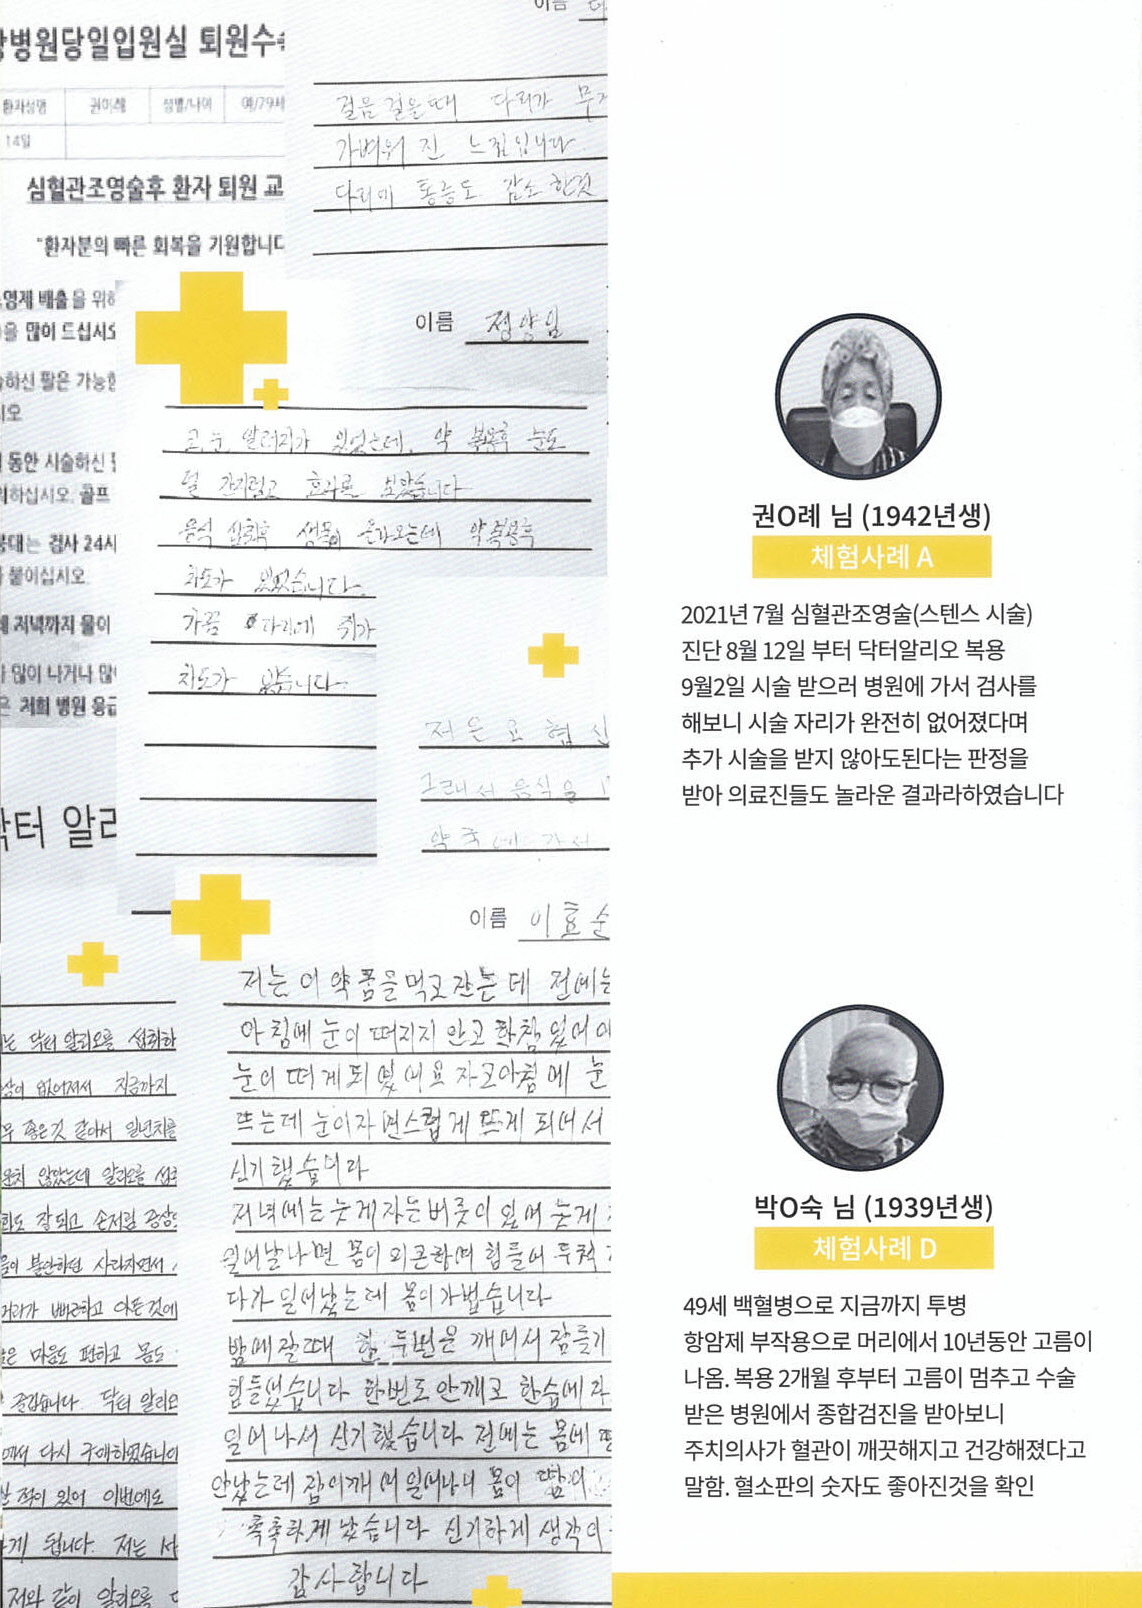 병원당일입원실 퇴원수
환자성명 권이례 성별/나이 여/79세
14일
심혈관조영술후 환자 퇴원 교
"환자분의 빠른 회복을 기원합니다
영제 배출을 위해
을 많이 드십시오
하신 팔은 가능한
시오
동안 시술하신
하십시오. 골프
붕대는 검사 24시
붙이십시오.
저녁까지 물이
많이 나거나 많
은 저희 병원 응급
닥터 알리
이름
걸음 걸을때 다리가 무거
가벼워 진 느낌입니다
다리에 통증도 감소 한것
이름 정양임
코, 눈, 알러지가 있었는데, 약 복용후 눈도
덜 간지럽고 효과를 보았습니다
음식 섭취후 생목이 올라오는데 약복용후
차도가 있었습니다.
가끔 다리에 쥐가
차도가 있습니다.
저 은 요 협 신
그래서 음식을
약국에 가서
이름 이효순
저는 이 약품을 먹고 잔는데 전에는
아침에 눈이 떠지지 안고 한참 있어야
눈이 떠게되었어요 자고아침에 눈
뜨는데 눈이자연스럽게 뜨게 되어서
신기했습니다
저녁에는 늦게자는버릇이있어 늦게
일어날나면 몸이 피곤하여 힘들어 두척
다가 일어났는데 몸이가볍습니다
밤에잘때 한 두번은 깨어서 잠들기
힘들었습니다 한번도안깨고 한숨에자
일어나서 신기했습니다 전에는 몸에 땀
안났는데 잠이깨서 일어나니 몸이 땀이
촉촉하게났습니다 신기하게 생각이
감사합니다
는 닥터알리오를 섭취하
상이 없어져서 지금까지
무 좋은것 같아서 일년치를
운치 않았는데 알리오를 섭취
화도 잘되고 손저림 증상도
들이 불안하던 사라지면서
거리가 빠르하고 아픈것에
같은 마음도 편하고 몸도
즐겁습니다. 닥터 알리오
어서 다시 구매하였습니다
한 적이 있어 이번에도
하게 됩니다. 저는 서
저와 같이 알리오를
권O례 님 (1942년생)
체험사례 A
2021년 7월 심혈관조영술(스텐스 시술)
진단 8월 12일 부터 닥터알리오 복용
9월2일 시술 받으러 병원에 가서 검사를
해보니 시술 자리가 완전히 없어졌다며
추가 시술을 받지 않아도된다는 판정을
받아 의료진들도 놀라운 결과라하였습니다
박O숙 님 (1939년생)
체험사례 D
49세 백혈병으로 지금까지 투병
항암제 부작용으로 머리에서 10년동안 고름이
나옴. 복용 2개월 후부터 고름이 멈추고 수술
받은 병원에서 종합검진을 받아보니
주치의사가 혈관이 깨끗해지고 건강해졌다고
말함. 혈소판의 숫자도 좋아진것을 확인